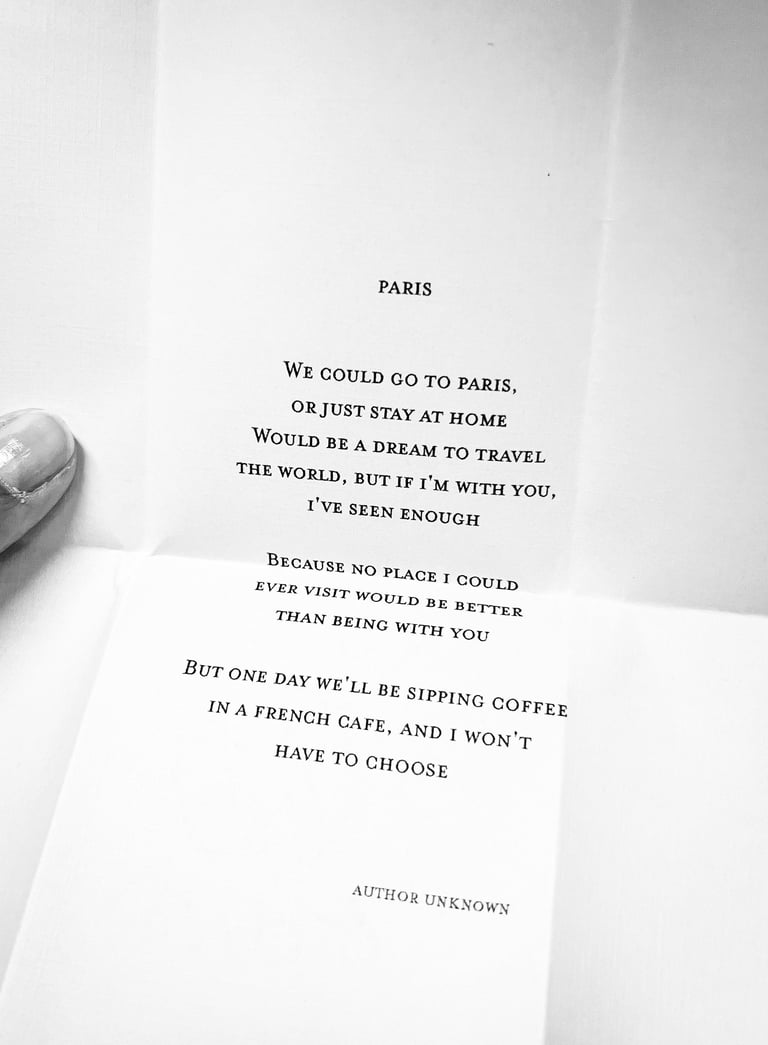 PARIS
WE COULD GO TO PARIS,
OR JUST STAY AT HOME
WOULD BE A DREAM TO TRAVEL
THE WORLD, BUT IF I'M WITH YOU,
I'VE SEEN ENOUGH
BECAUSE NO PLACE I COULD
EVER VISIT WOULD BE BETTER
THAN BEING WITH YOU
BUT ONE DAY WE'LL BE SIPPING COFFEE
IN A FRENCH CAFE, AND I WON'T
HAVE TO CHOOSE
AUTHOR UNKNOWN